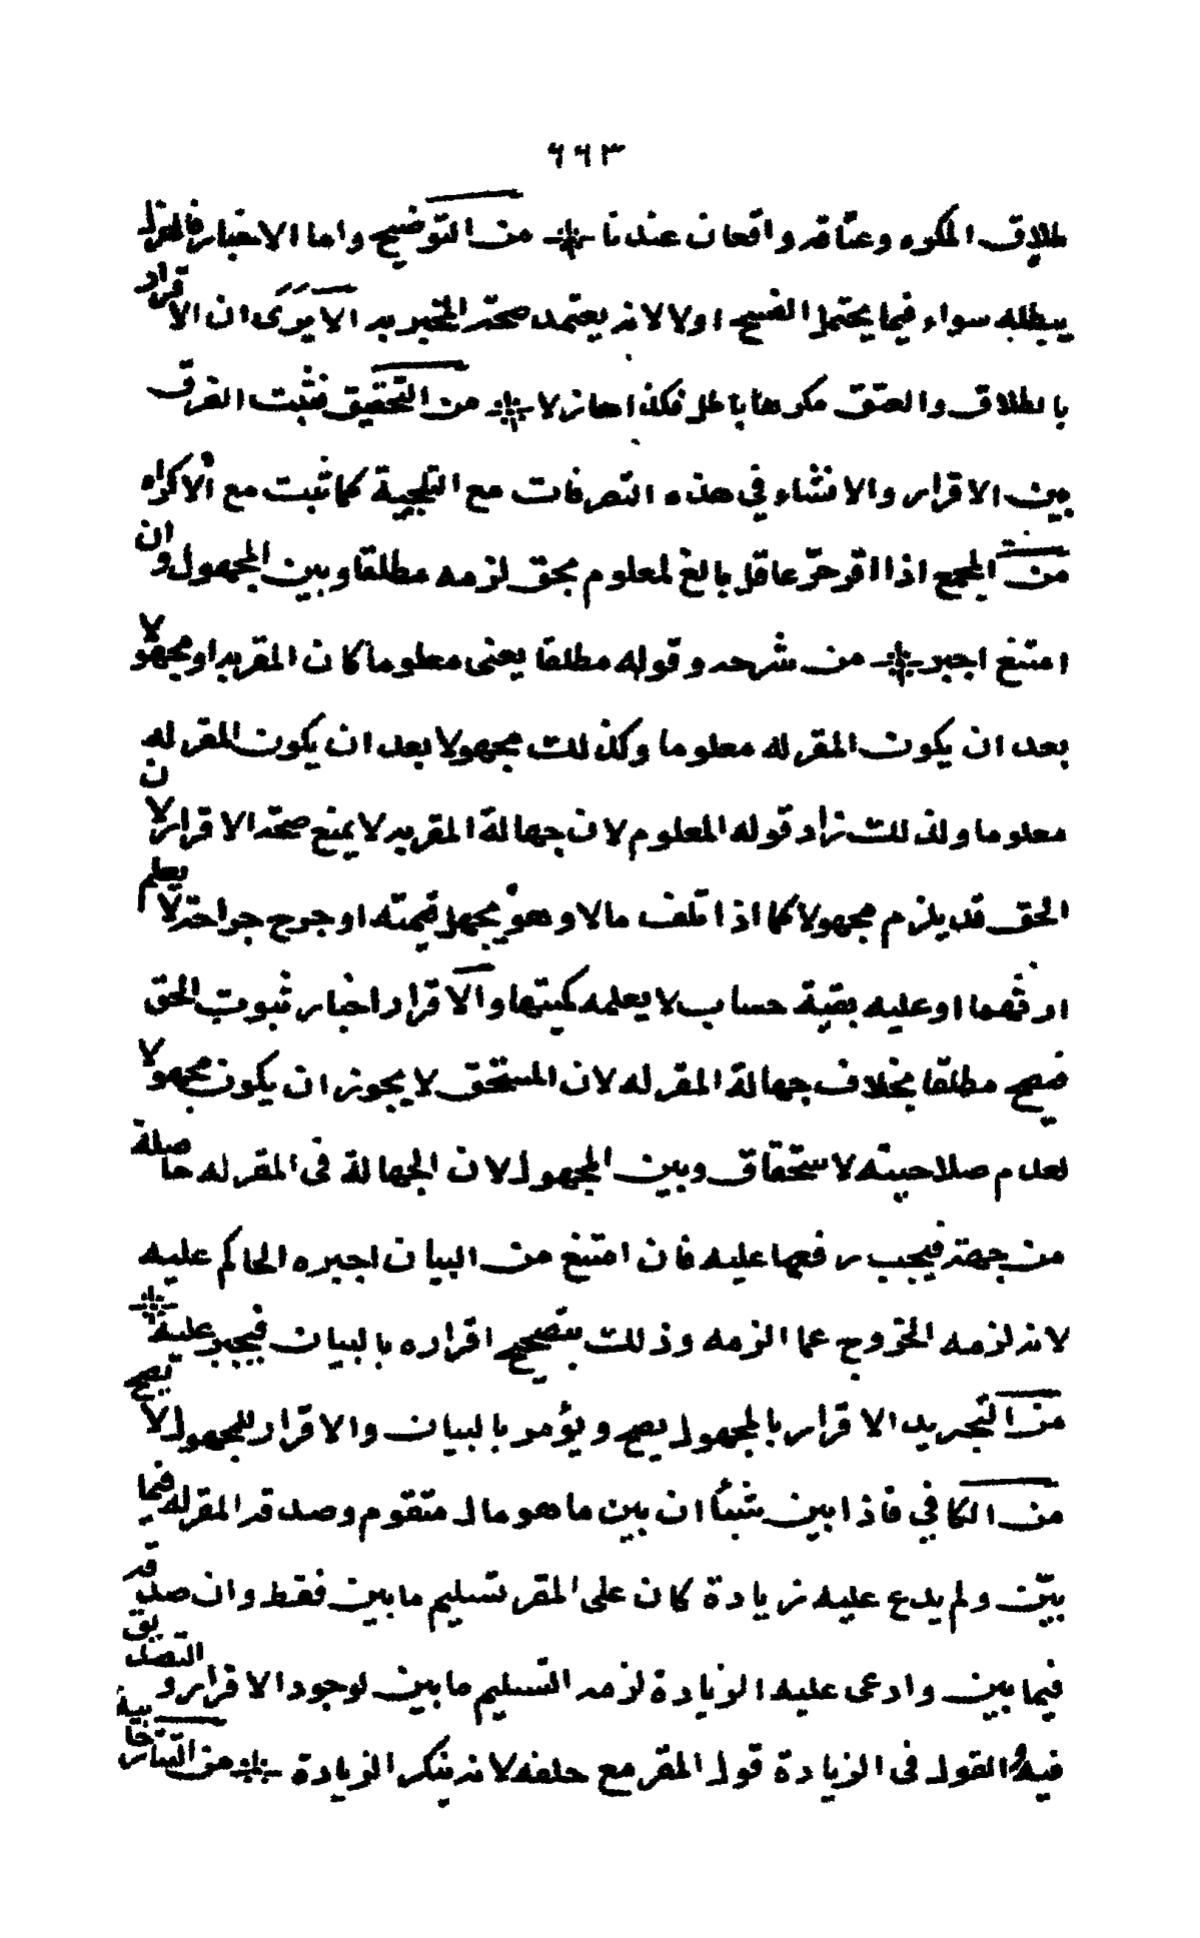 ٦٦٣
طلاق المكره وعتاقه واقعان عندنا من التوضيح واما الاخبار فالهزل
يبطله سواء فيما يحتمل الفسخ اولا لانه يعتمد صحة المخبر به الا يرى ان الاقرار
بالطلاق والعتق مكرها باطل فكذا هازلا من التحقيق فثبت الفرق
بين الاقرار والانشاء في هذه التصرفات مع التلجية كما ثبت مع الاكراه
من المجمع اذا اقر حر عاقل بالغ لمعلوم بحق لزمه مطلقا وبين المجهول وان
امتنع اجبر من شرحه وقوله مطلقا يعنى معلوما كان المقر به او مجهولا
بعد ان يكون المقر له معلوما وكذلك مجهولا بعد ان يكون المقر له
معلوما ولذلك زاد قوله المعلوم لان جهالة المقر به لا يمنع صحة الاقرار لان
الحق قد يلزم مجهولا كما اذا تلف مالا وهو يجهل قيمته او جرح جراحة لا يعلم
ارشها او عليه بقية حساب لا يعلمه كميتها والاقرار اخبار ثبوت الحق
فصح مطلقا بخلاف جهالة المقر له لان المستحق لا يجوز ان يكون مجهولا
لعدم صلاحيته لاستحقاق وبين المجهول لان الجهالة فى المقر له حاصلة
من جهته فيجب رفعها عليه فان امتنع من البيان اجبره الحاكم عليه
لانه لزمه الخروج عما الزمه وذلك بتصحيح اقراره بالبيان فيجبر عليه
من التجريد الاقرار بالمجهول يصح ويؤمر بالبيان والاقرار للمجهول لا يصح
من الكافي فاذا بين شيئا ان بين ما هو مال متقوم وصدقه المقر له فيما
بين ولم يدع عليه زيادة كان على المقر تسليم ما بين فقط وان صدقه
فيما بين وادعى عليه الزيادة لزمه التسليم ما بين لوجود الاقرار والتصديق
فيه والقول فى الزيادة قول المقر مع حلفه لانه ينكر الزيادة من التتارخانية